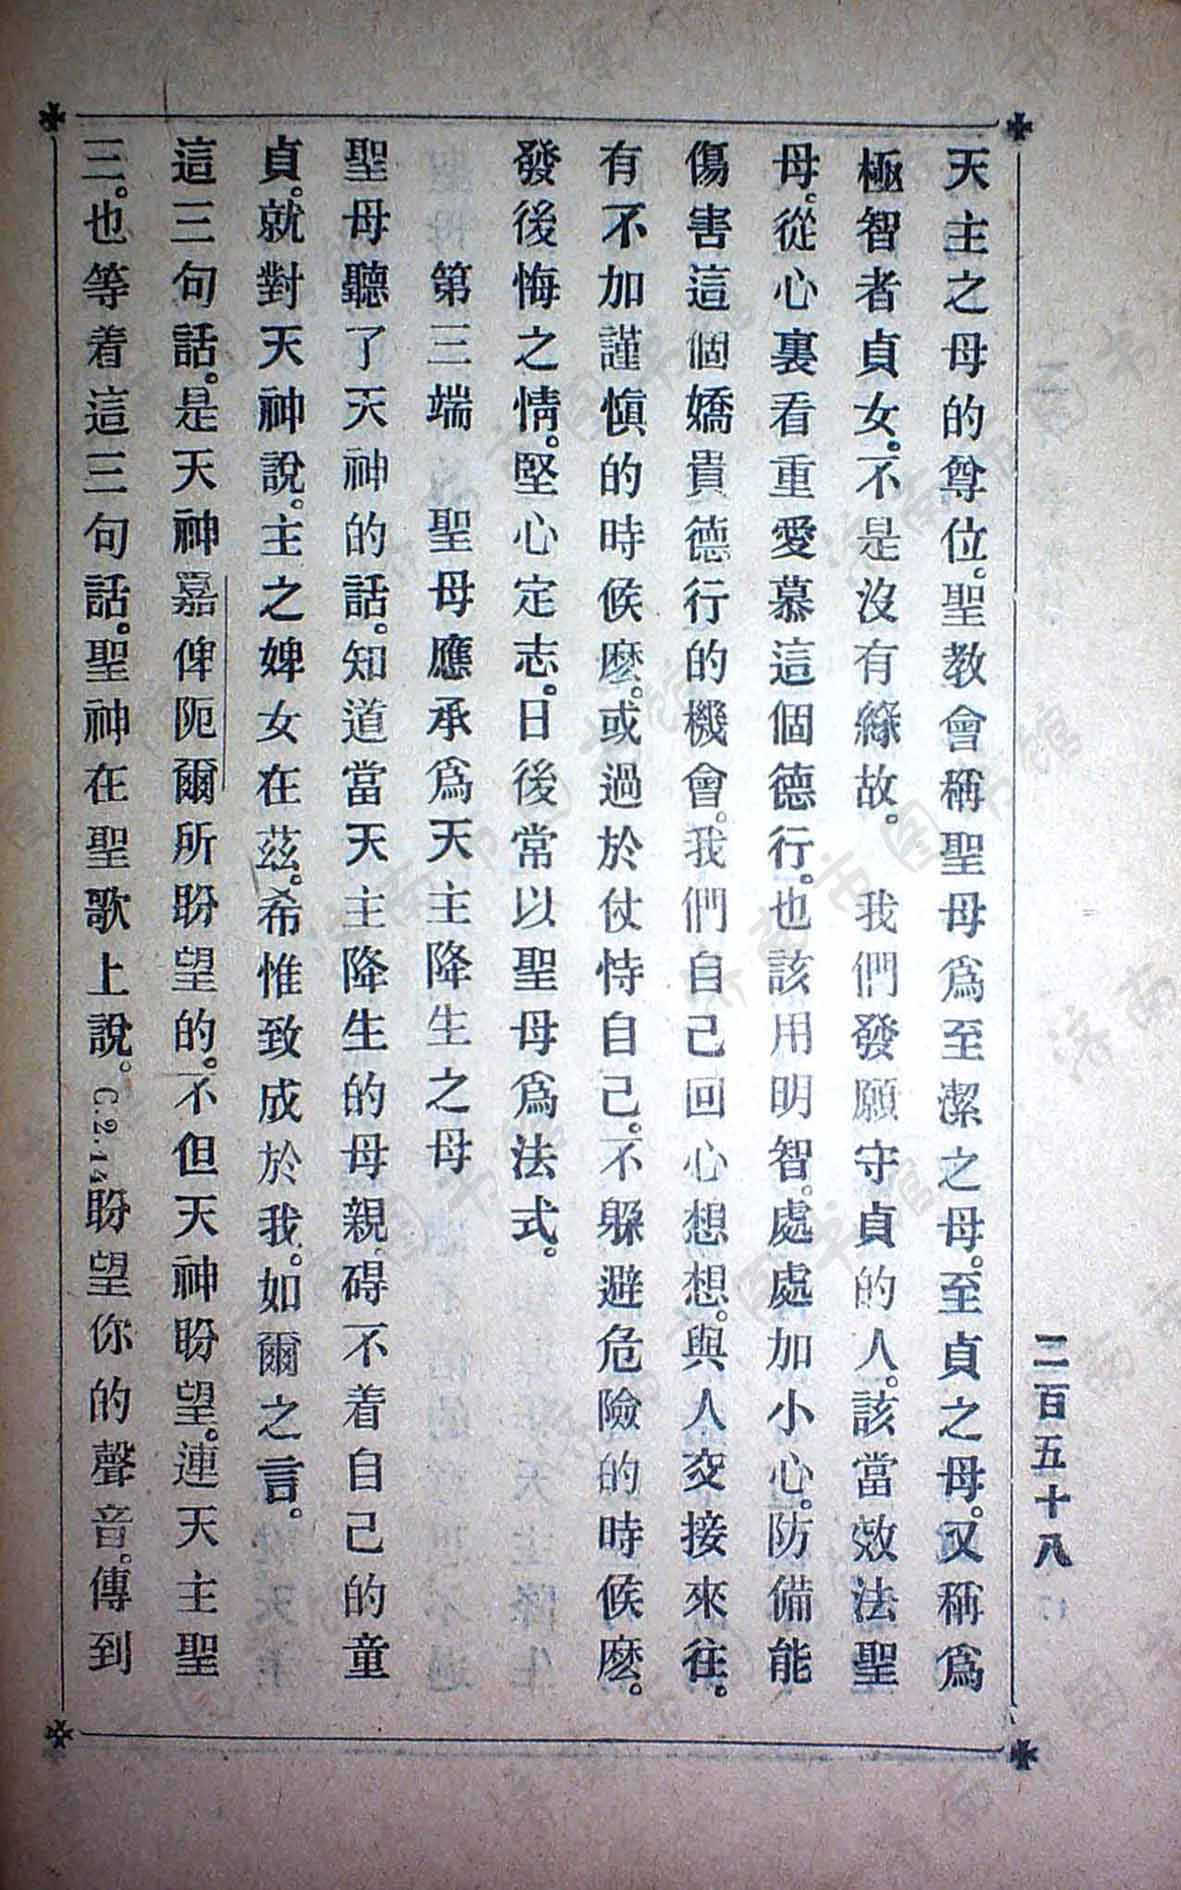 二百五十八
天主之母的尊位。聖教會稱聖母爲至潔之母。至貞之母。又稱爲
極智者貞女。不是沒有緣故。　我們發願守貞的人。該當效法聖
母。從心裏看重愛慕這個德行。也該用明智。處處加小心。防備能
傷害這個嬌貴德行的機會。我們自己回心想想。與人交接來往。
有不加謹愼的時候麽。或過於仗恃自己。不躲避危險的時候麽。
發後悔之情。堅心定志。日後常以聖母爲法式。
第三端　聖母應承爲天主降生之母
聖母聽了天神的話。知道當天主降生的母親。碍不着自己的童
貞。就對天神說。主之婢女在茲。希惟致成於我。如爾之言。
這三句話。是天神嘉俾阨爾所盼望的。不但天神盼望。連天主聖
三。也等着這三句話。聖神在聖歌上說。C.2.14盼望你的聲音。傳到
濟南市图书馆